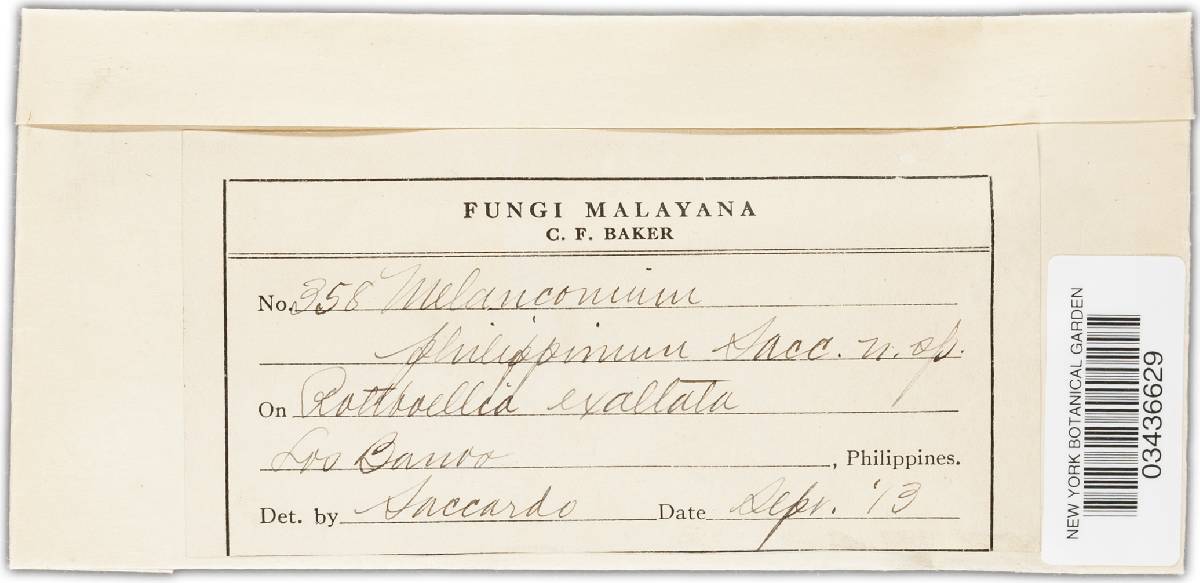 FUNGI MALAYANA
C. F. BAKER
No. 358 Melanconium
philippinum Sacc. n. sp.
On Rottboellia exaltata
Los Banos, Philippines.
Det. by Saccardo Date Sept. '13
NEW YORK BOTANICAL GARDEN
03436629